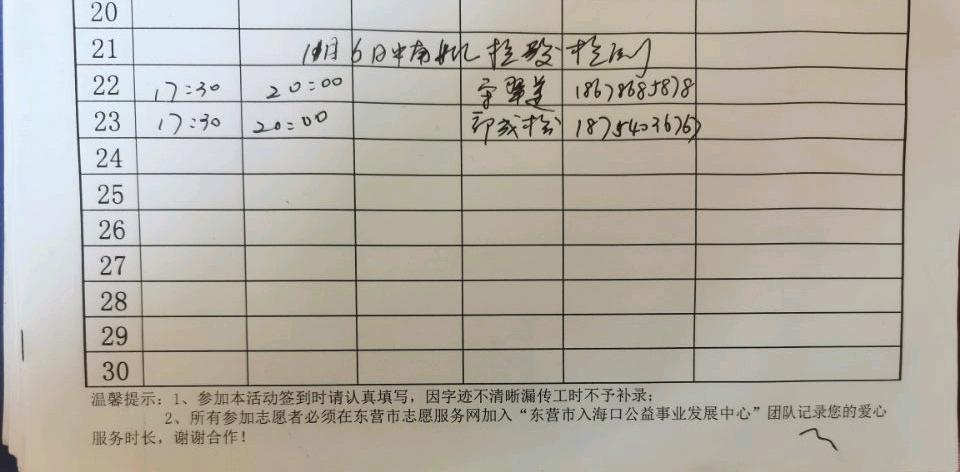 20
21 月6日中南
22 17:30 20:00 18678685878
23 17:30 20:00 18754036767
24
25
26
27
28
29
30
温馨提示：1、参加本活动签到时请认真填写，因字迹不清晰漏传工时不予补录；
2、所有参加志愿者必须在东营市志愿服务网加入“东营市入海口公益事业发展中心”团队记录您的爱心
服务时长，谢谢合作！